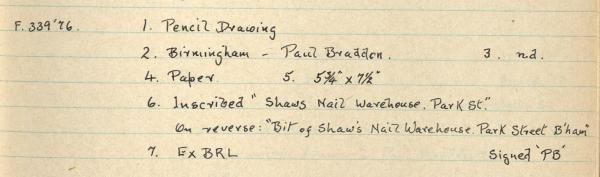 F.339'76. 1. Pencil Drawing
2. Birmingham - Paul Braddon. 3. n.d.
4. Paper. 5. 5¾" x 7½"
6. Inscribed "Shaws Nail Warehouse. Park St."
On reverse: "Bit of Shaw's Nail Warehouse. Park Street B'ham"
7. Ex BRL Signed 'PB'